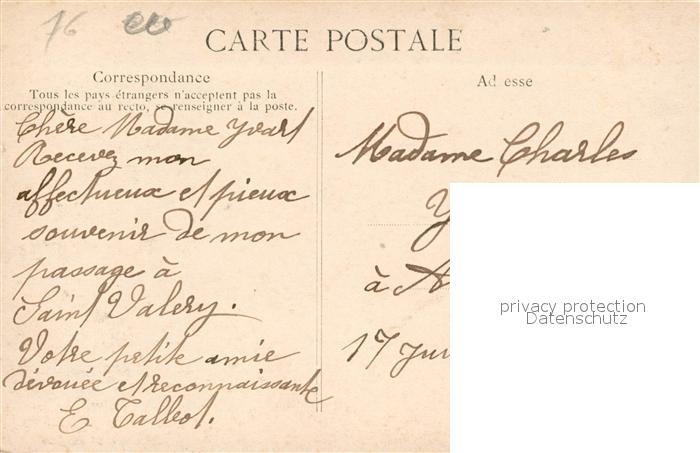 76
CARTE POSTALE
Correspondance
Tous les pays étrangers n'acceptent pas la
correspondance au recto, se renseigner à la poste.
Chère Madame Yvart
Recevez mon
affectueux et pieux
souvenir de mon
passage à
Saint Valery.
Votre petite amie
dévouée et reconnaissante
E Talbot.
Ad esse
Madame Charles
Y
à A
17 Jui
privacy protection
Datenschutz